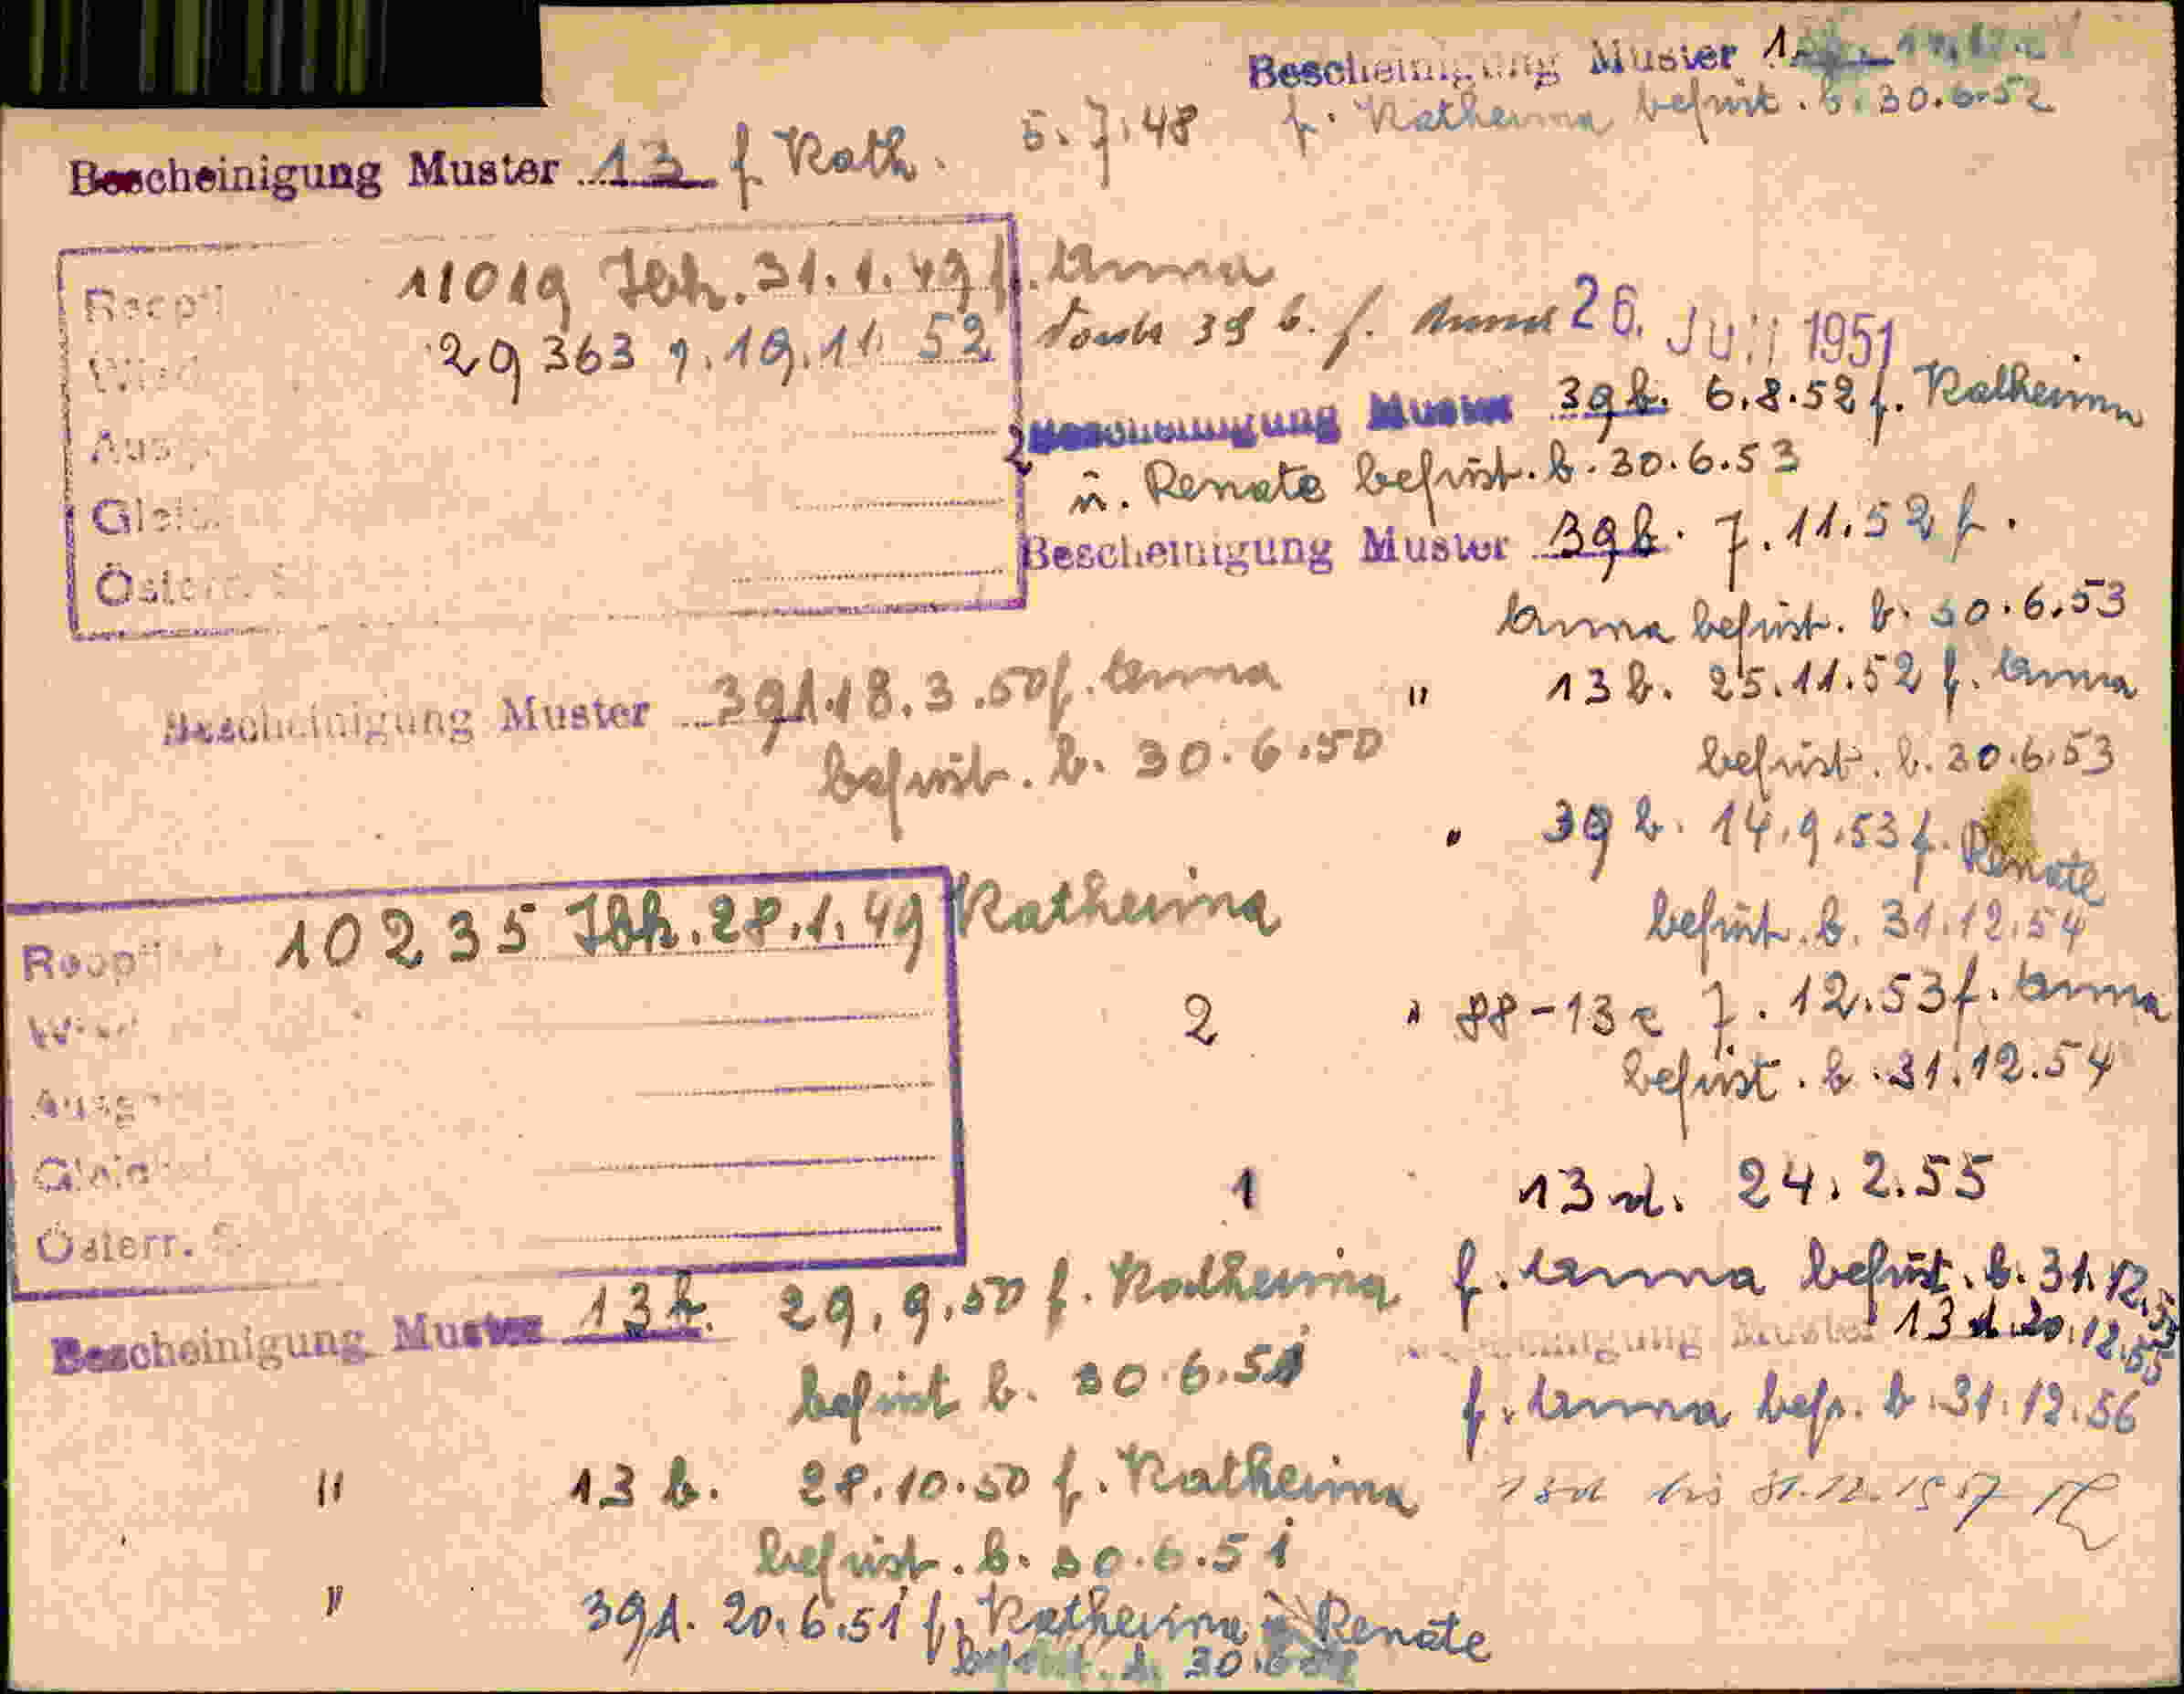 Bescheinigung Muster
f. Katherina befrist. b. 30.6.52
Bescheinigung Muster 13 f Kath. 5.7.48
11019 Ibk. 31.1.49 f. Anna
29363 19.11.52
39 b. f. Anna 26. Juli 1951
Bescheinigung Muster 39b. 6.8.52 f. Katherina
u. Renate befrist. b. 30.6.53
Bescheinigung Muster 39b. 7.11.52 f.
Anna befrist. b. 30.6.53
Österr.
Bescheinigung Muster 39A. 18.3.50 f. Anna
befrist. b. 30.6.50
" 13b. 25.11.52 f. Anna
befrist. b. 30.6.53
" 39b. 14.9.53 f. Renate
befrist. b. 31.12.54
10235 Ibk. 28.1.49 Katherina
2 " 88-13c 7.12.53 f. Anna
befrist. b. 31.12.54
Österr.
1 13d. 24.2.55
f. Anna befrist. b. 31.12.55
Bescheinigung Muster 13d. 20.12.55
f. Anna befr. b. 31.12.56
13d bis 31.12.1957
Bescheinigung Muster 13b. 29.9.50 f. Katherina
befrist b. 30.6.51
" 13b. 28.10.50 f. Katherina
befrist. b. 30.6.51
" 39A. 20.6.51 f. Katherina u Renate
befrist. b. 30.6.